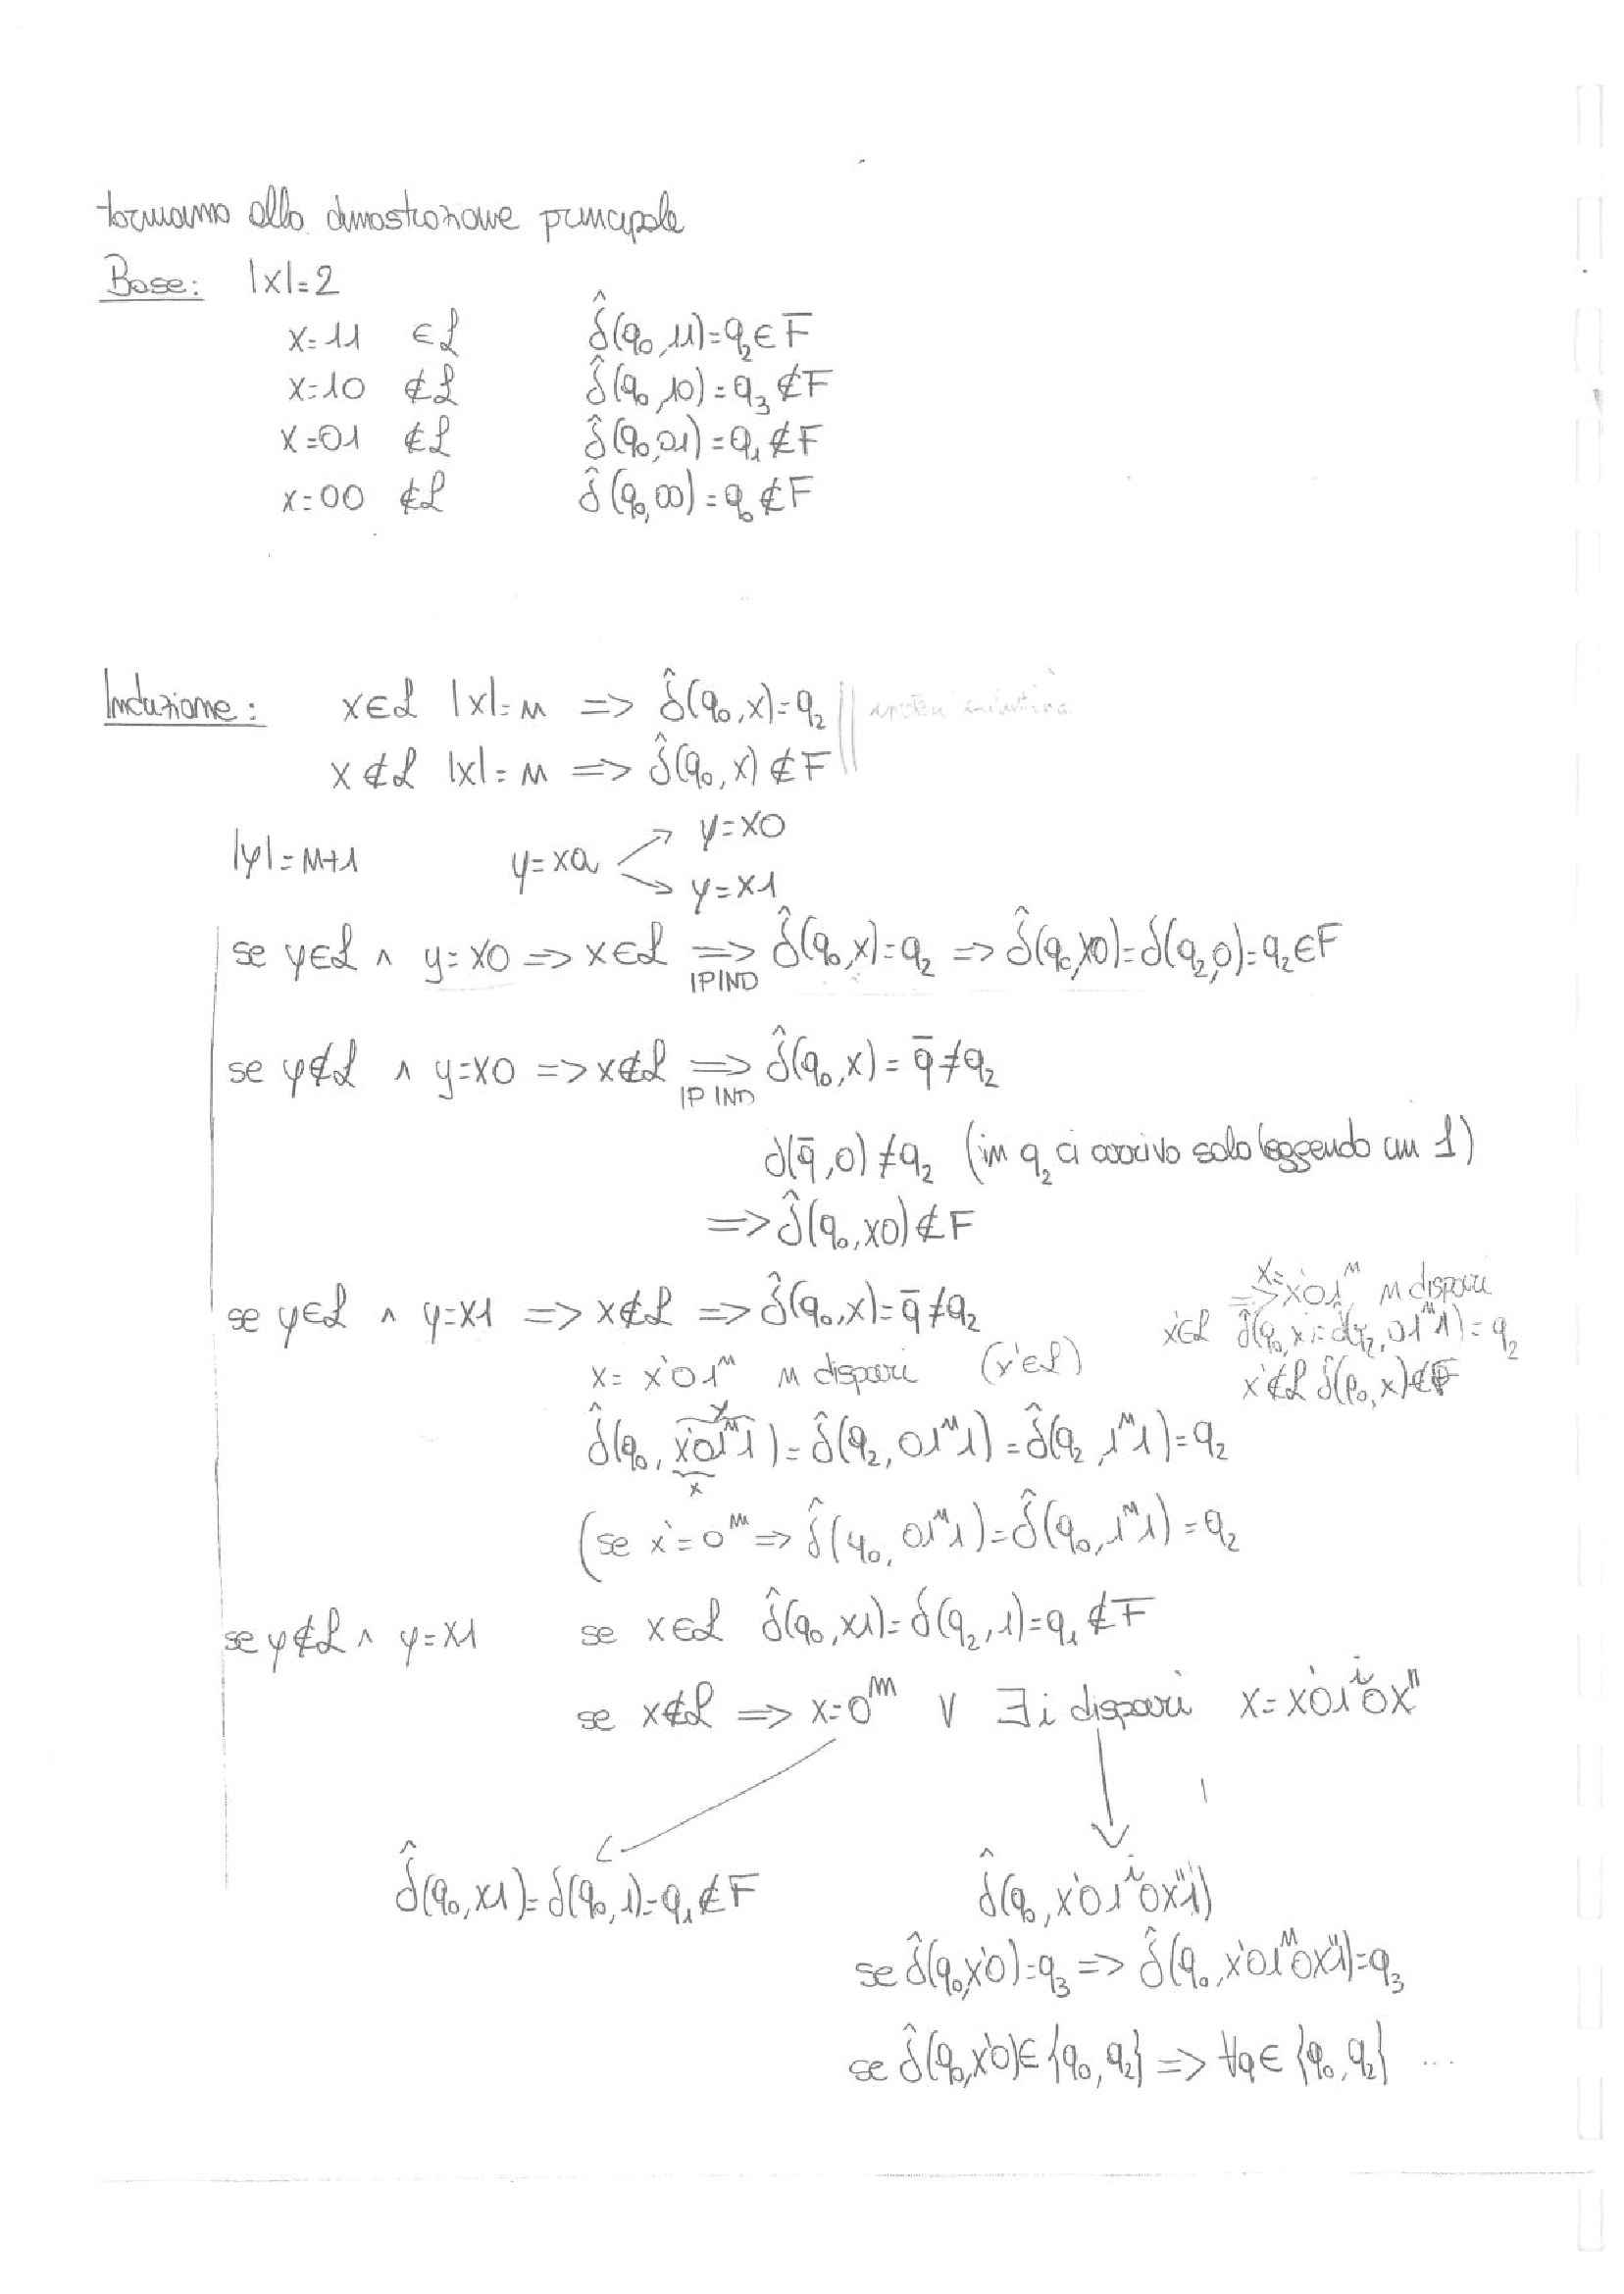 torniamo alla dimostrazione principale
Base: |x|=2
x=11 ∈ℒ δ̂(q₀,11)=q₂∈F
x=10 ∉ℒ δ̂(q₀,10)=q₃∉F
x=01 ∉ℒ δ̂(q₀,01)=q₁∉F
x=00 ∉ℒ δ̂(q₀,00)=q₀∉F
Induzione: x∈ℒ |x|=n => δ̂(q₀,x)=q₂ ipotesi induttiva
x∉ℒ |x|=n => δ̂(q₀,x)∉F
y=x0
|y|=n+1 y=xa
y=x1
se y∈ℒ ∧ y=x0 => x∈ℒ => δ̂(q₀,x)=q₂ => δ̂(q₀,x0)=δ(q₂,0)=q₂∈F
IPIND
se y∉ℒ ∧ y=x0 => x∉ℒ => δ̂(q₀,x)=q̄≠q₂
IP IND
δ(q̄,0)≠q₂ (in q₂ ci arrivo solo leggendo un 1)
=> δ̂(q₀,x0)∉F
se y∈ℒ ∧ y=x1 => x∉ℒ => δ̂(q₀,x)=q̄≠q₂
x= x'01ⁿ n dispari (x'∈ℒ)
=> x=x'01ⁿ n dispari
x'∈ℒ δ̂(q₀,x)=δ̂(q₂,01ⁿ1)=q₂
x'∉ℒ δ̂(q₀,x)∉F
y
δ̂(q₀,x'01ⁿ1)=δ̂(q₂,01ⁿ1)=δ̂(q₂,1ⁿ1)=q₂
x
(se x'=0ᵐ => δ̂(q₀,01ⁿ1)=δ̂(q₀,1ⁿ1)=q₂
se y∉ℒ ∧ y=x1 se x∈ℒ δ̂(q₀,x1)=δ(q₂,1)=q₁∉F
se x∉ℒ => x=0ᵐ ∨ ∃i dispari x=x'01ⁱ0x"
δ̂(q₀,x1)=δ(q₀,1)=q₁∉F
δ̂(q₀,x'01ⁱ0x"1)
se δ̂(q₀,x'0)=q₃ => δ̂(q₀,x'01ⁿ0x"1)=q₃
se δ̂(q₀,x'0)∈{q₀,q₂} => ∀q∈{q₀,q₂} ...